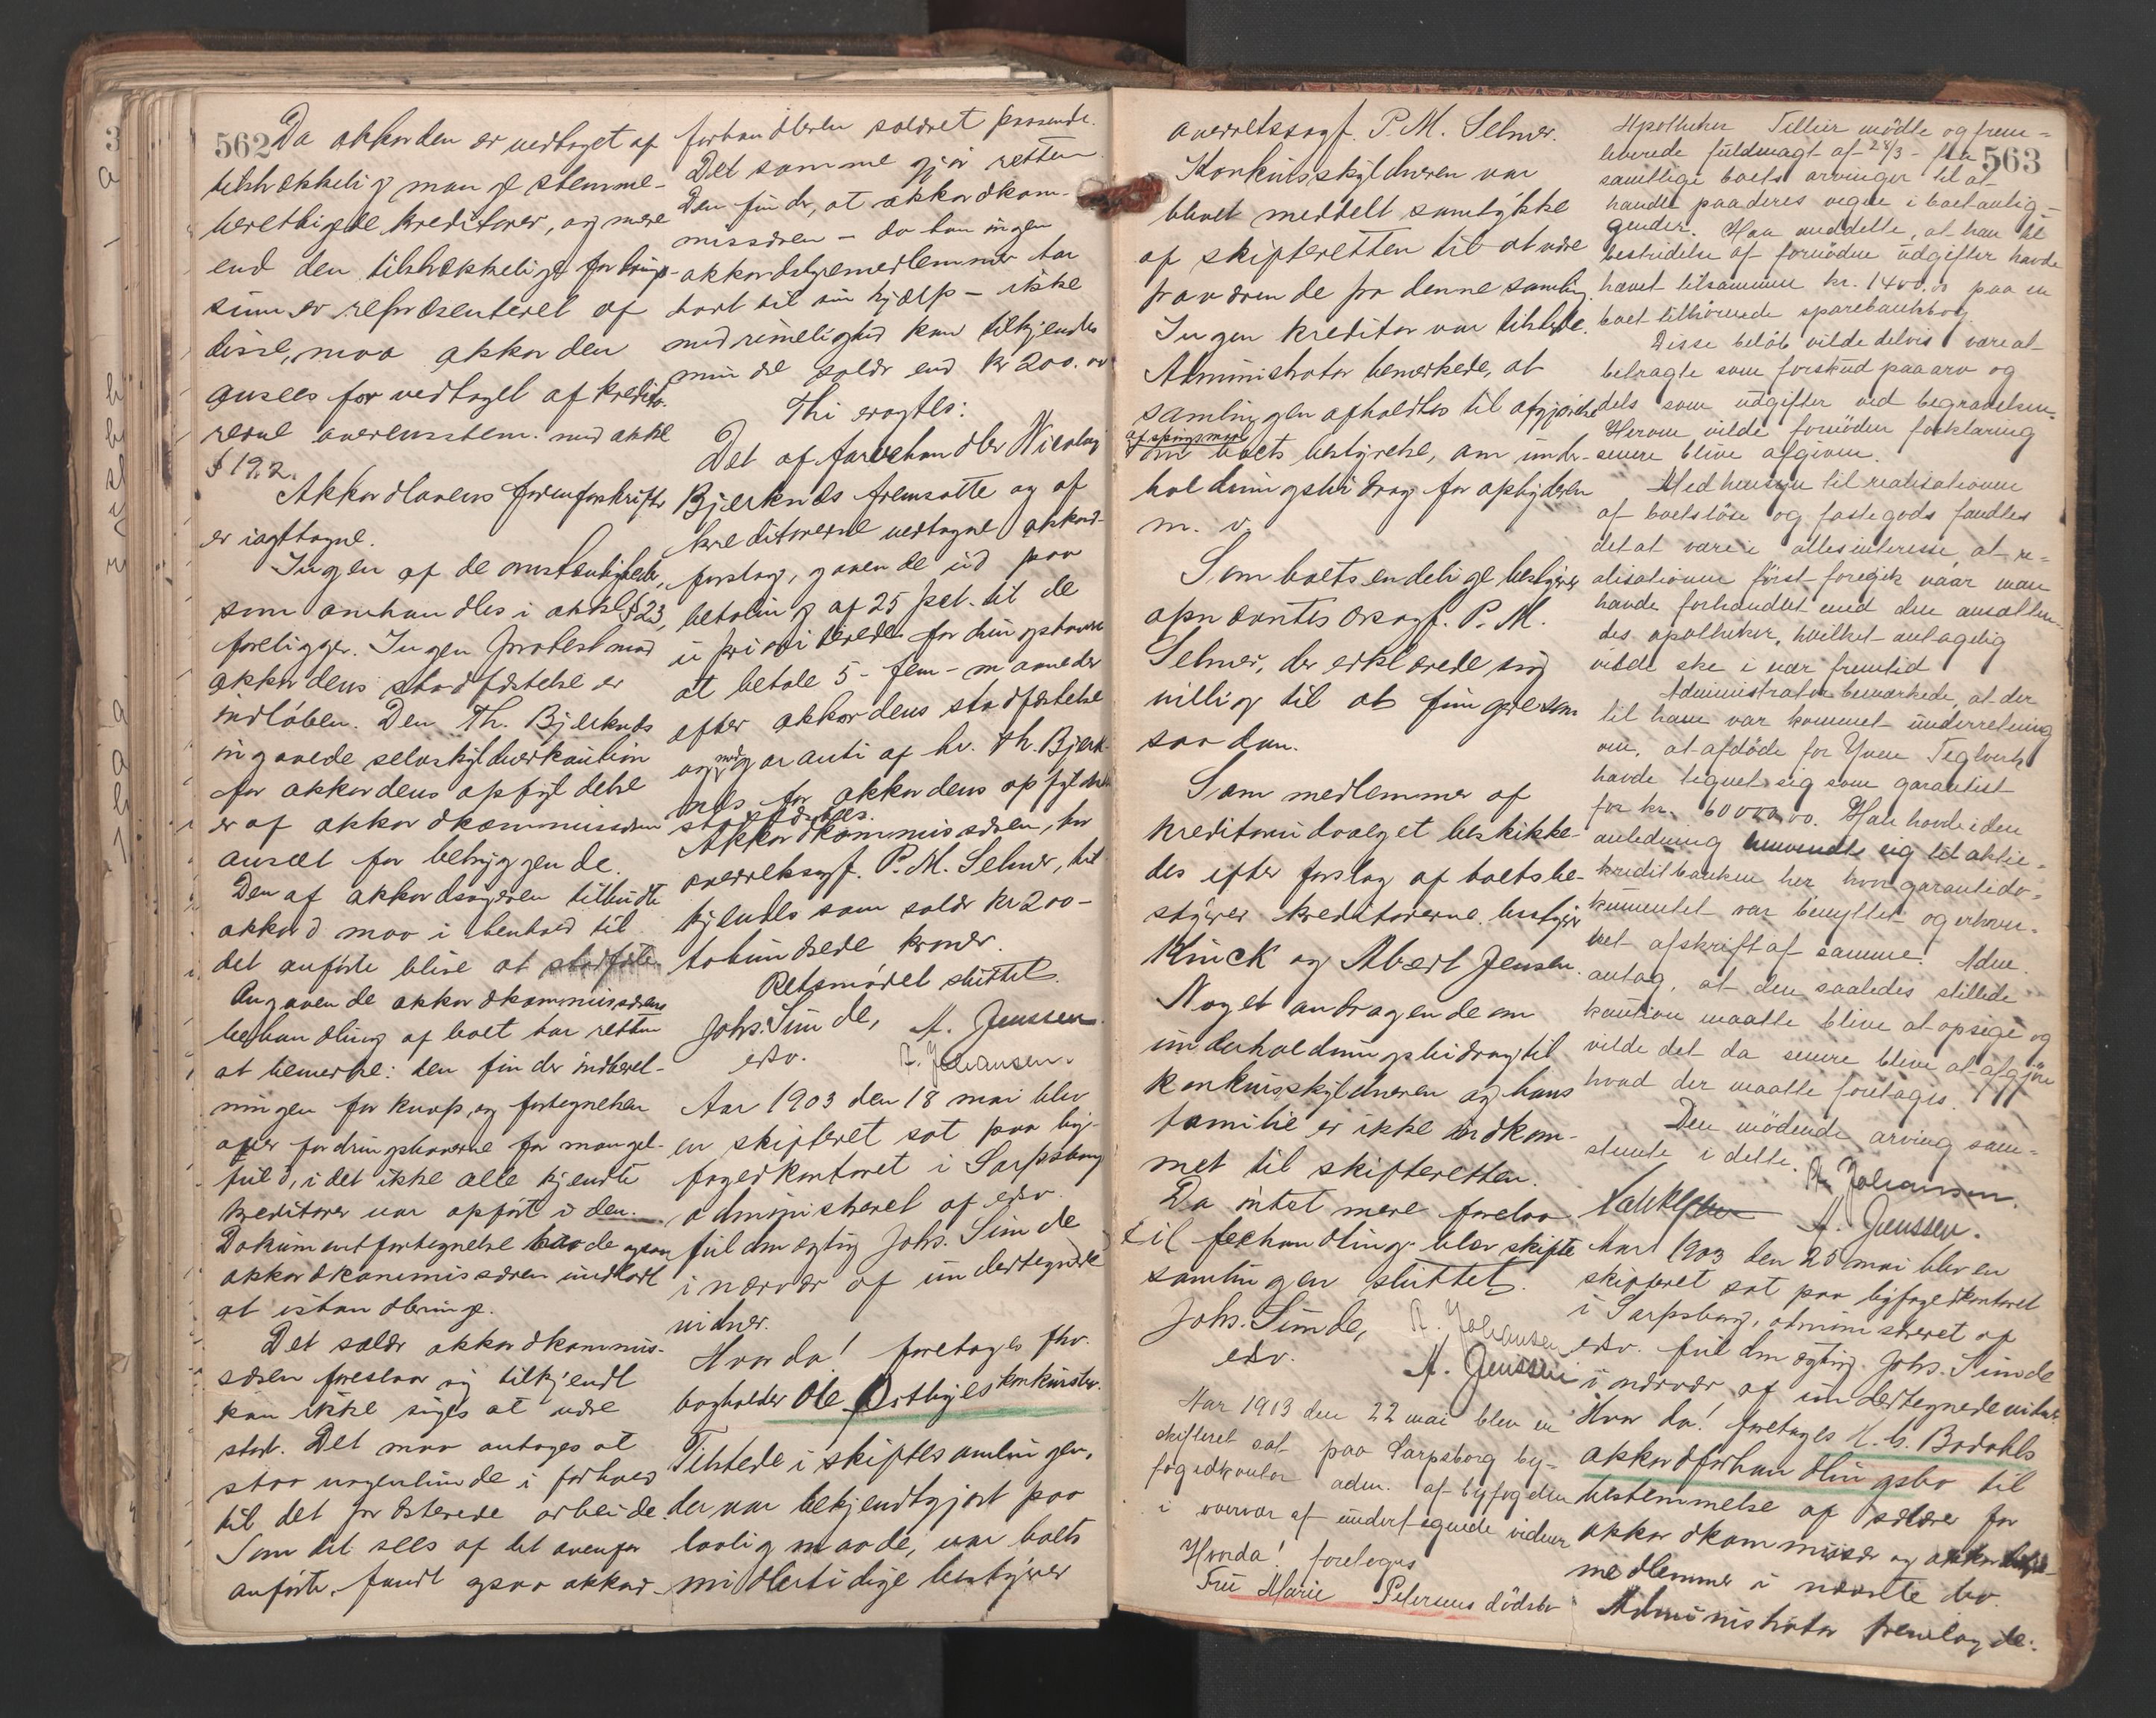 562
Da akkorden er vedtaget af
tilstrækkelig mange stemme-
berettigede kreditorer, og mere
end den tilstrækkelige fordrings-
sum er repræsenteret af
disse, maa akkorden
ansees for vedtaget af kredito-
rerne overensstem. med akkl
§ 19.2.
Akkordlovens formforskrifter
er iagttagne.
Ingen af de omstændigheder,
som omhandles i akkl § 23,
foreligger. Ingen protest mod
akkordens stadfæstelse er
indløben. Den Th. Bjerknæs
ingaaede selvskyldnerkaution
for akkordens opfyldelse
er af akkordkommissæren
anseet for betryggende.
Den af akkordsøgeren tilbudte
akkord maa i henhold til
det anførte blive at stadfæste
Angaaende akkordkommissærens
behandling af boet har retten
at bemerke: den finder indberet-
ningen for knap, og fortegnelsen
over fordringshaverne for mangel-
fuld, idet ikke alle kjendte
kreditorer var opført i den.
Dokumentfortegnelse havde ogsaa
akkordkommissæren undladt
at istandbringe.
Det salær akkordkommis-
særen foreslaar sig tilkjendt
kan ikke siges at være
stort. Det maa antages at
staa nogenlunde i forhold
til det præsterede arbeide.
Som det sees af det ovenfor
anførte, fandt ogsaa akkord-
forhandleren salæret passende.
Det samme gjør retten
Den finder, at akkordkom-
missæren – da han ingen
akkordstyremedlemmer har
havt til sin hjælp – ikke
med rimelighed kan tilkjendes
mindre salær end kr 200.00
Thi eragtes:
Det af farvehandler Nicolay
Bjerknæs fremsatte og af
kreditorerne vedtagne akkord-
forslag, gaaende ud paa
betaling af 25 pct. til de
uprioriterede fordringshavere
at betale 5 – fem – maaneder
efter akkordens stadfæstelse
og med garanti af hr. Th. Bjerk-
næs for akkordens opfyldelse
stadfæstes.
Akkordkommissæren, hr
overretssagf. P. M. Selmer, til-
kjendes som salær kr 200 –
tohundrede kroner.
Retsmødet sluttet.
Johs. Sunde, A. Jenssen.
edsv. A. Johansen.
Aar 1903 den 18 mai blev
en skifteret sat paa by-
fogedkontoret i Sarpsborg
administreret af edsv.
fuldmægtig Johs. Sunde
i nærvær af undertegnede
vidner.
Hvor da! foretages fhv.
bogholder Ole Østbyes konkursbo.
Tilstede i skiftesamlingen,
der var bekjendtgjort paa
lovlig maade, var boets
midlertidige bestyrer
overretssagf. P. M. Selmer.
Konkursskyldneren var
blevet meddelt samtykke
af skifteretten til at være
fraværende fra denne samling.
Ingen kreditor var tilstede.
Administrator bemerkede, at
samlingen afholdtes til afgjørelse
af spørgsmaal
om boets bestyrelse, om under-
holdningsbidrag for opbyderen
m. v.
Som boets endelige bestyrer
opnævntes orsagf. P. M.
Selmer, der erklærede sig
villig til at fungere som
saadan.
Som medlemmer af
kreditorudvalget beskikke-
des efter forslag af boets be-
styrer kreditorerne bestyrer
Klück og Albert Jensen.
Noget andragende om
underholdningsbidrag til
konkursskyldneren og hans
familie er ikke indkom-
met til skifteretten.
Da intet mere forelaa
til fechandling blev skifte
samlingen sluttet.
Johs. Sunde, A. Johansen
edsv. A. Jenssen
Aar 1913 den 22 mai blev en
skifteret sat paa Sarpsborg by-
fogedkontor adm. af byfogden
i overvær af undertegnede vidner
Hvorda! foretoges
Fru Marie Petersens dødsbo
563
Apotheker Tellier mødte og frem-
leverede fuldmagt af 28/3 – fra
samtlige boets arvinger til at
handle paa deres vegne i boet anlig-
gender. Han meddelte, at han til
bestridelse af fornødne udgifter havde
hævet tilsammen kr. 1400.00 paa en
boet tilhørende sparebankbog.
Disse beløb vilde delvis være at
betragte som forskud paa arv og
dels som udgifter ved begravelsen.
Herom vilde fornøden forklaring
senere blive afgiven.
Med hensyn til realisationen
af boets løse og faste gods fandtes
det at være i alles interesse, at re-
alisationen først foregik naar man
havde forhandlet med den ansætten-
des apotheker, hvilket antagelig
vilde ske i nær fremtid
Administrator bemærkede, at der
til ham var kommet underretning
om, at afdøde for Yven Teglverk
havde tegnet sig som garantist
for kr. 60000.00. Han havde i den
anledning henvendt sig til aktie-
kreditbanken her hvor garantido-
kumentet var benyttet og erhver-
vet afskrift af samme. Adm.
antog, at den saaledes stillede
kaution maatte blive at opsige og
vilde det da senere blive at afgjøre
hvad der maatte foretages.
Den mødende arving sam-
stemte i dette.
A. Johansen.
A. Jenssen.
Aar 1903 den 25 mai blev en
skifteret sat paa byfogedkontoret
i Sarpsborg, administreret af
edsv. fuldmægtig Johs. Sunde
i nærvær af undertegnede vidner.
Hvor da! foretages H. C. Bodahls
akkordforhandlingsbo til
bestemmelse af salær for
akkordkommissær og
medlemmer i nævnte bo.
Administrator fremlagde: